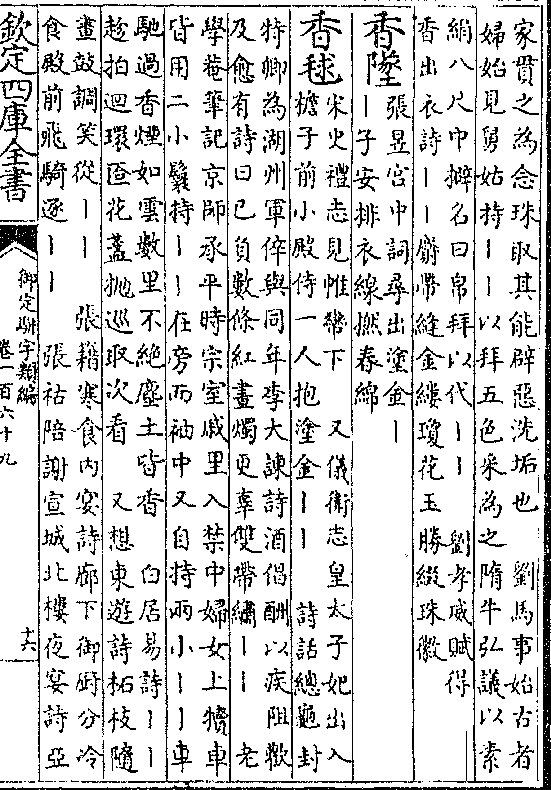 家貫之為念珠取其能辟惡洗垢也　劉馬事始古者
婦始見舅姑持丨丨以拜五色采為之隋牛弘議以素
絹八尺巾擗名曰帛拜以代丨丨　劉孝威賦得
香出衣詩丨丨麝帶縫金縷瓊花玉勝綴珠徽
香墜
張昱宫中詞尋出塗金丨
丨子安排衣線撚春綿
香毬
宋史禮志見帷幣下　又儀衛志皇太子妃出入
檐子前小殿侍一人抱塗金丨丨　詩話總龜封
特卿為湖州軍倅與同年李大諫詩酒倡酬以疾阻歡
及愈有詩曰已負數條紅畫燭更辜雙帶繡丨丨　老
學菴筆記京師承平時宗室戚里入禁中婦女上犢車
皆用二小鬟持丨丨在旁而袖中又自持兩小丨丨車
馳過香煙如雲數里不絕塵土皆香　白居易詩丨丨
趁拍迴環匼花盞抛巡取次看　又想東遊詩柘枝隨
畫鼓調笑從丨丨　張籍寒食内宴詩廊下御厨分冷
食殿前飛騎逐丨丨　張祜陪謝宣城北樓夜宴詩亞
欽定四庫全書
御定駢字類編
卷一百六十九
十六